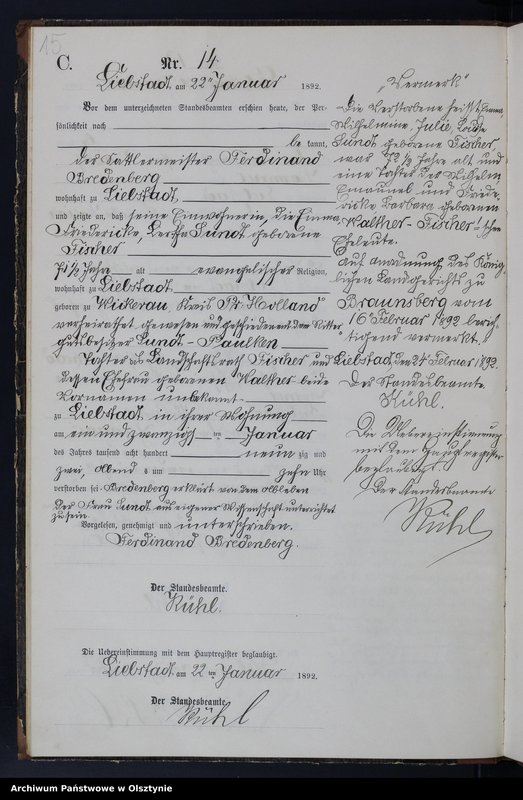 15
C.
Nr. 14.
Liebstadt am 22n Januar 1892.
Vor dem unterzeichneten Standesbeamten erschien heute, der Per-
sönlichkeit nach
be kannt,
der Sattlermeister Ferdinand
Bredenberg
wohnhaft zu Liebstadt,
und zeigte an, daß seine Einwohnerin, die Emma
Friedericke, Bertha Lundt geborene
Fischer
71 1/2 Jahre alt, evangelischer Religion,
wohnhaft zu Liebstadt,
geboren zu Wickerau, Kreis Pr. Holland
verheirathet gewesen und geschieden von dem Ritter
gutsbesitzer Lundt - Paulken
Tochter des Landschaftsrath Fischer und
dessen Ehefrau geborenen Walther beide
Vornamen unbekannt -
zu Liebstadt in ihrer Wohnung
am ein und zwanzigsten Januar
des Jahres tausend acht hundert neun zig und
zwei, Abend s um zehn Uhr
verstorben sei. Bredenberg erklärt von dem Ableben
der Frau Lundt aus eigener Wissenschaft unterrichtet
zu sein.
Vorgelesen, genehmigt und unterschrieben.
Ferdinand Bredenberg.
Der Standesbeamte.
Kühl.
Die Uebereinstimmung mit dem Hauptregister beglaubigt.
Liebstadt am 22ten Januar 1892.
Der Standesbeamte.
Kühl
„Vermerk"
Die Verstorbene heißt Emma
Wilhelmine, Julie, Louise
Lundt geborene Fischer,
war 72 1/2 Jahre alt und
eine Tochter des Wilhelm
Emanuel und Friede-
ricke Barbara geborenen
Walther - Fischer'schen
Eheleute.
Auf Anordnung des König-
lichen Landgerichts zu
Braunsberg vom
16 Februar 1892 berich-
tigend vermerkt.
Liebstadt, den 24 Februar 1892.
Der Standesbeamte.
Kühl.
Die Uebereinstimmung
mit dem Hauptregister
beglaubigt
Der Standesbeamte
Kühl
Archiwum Państwowe w Olsztynie